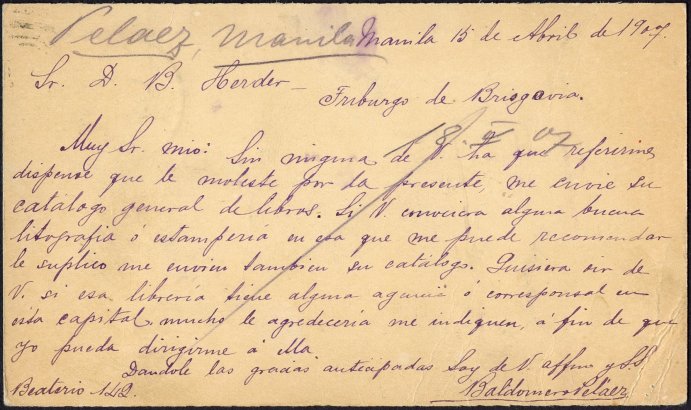 Pelaez, Manila
Manila 15 de Abril de 1907.
Sr. D. B. Herder —
Friburgo de Brisgovia.
18 V 07
Muy Sr. mio: Sin ninguna de V. ha que referirme
dispense que le moleste por la presente, me envie su
catálogo general de libros. Si V. conociera alguna buena
litografia ó estamperia en esa que me puede recomendar
le suplico me envien tambien su catálogo. Quisiera oir de
V. si esa librería tiene alguna agencia ó corresponsal en
esta capital, mucho le agredecería me indiquen, á fin de que
yo pueda dirigirme á ella
Dandole las gracias anticipadas Soy de V. affmo y S.S.
Beaterio 142. Baldomero Pelaez